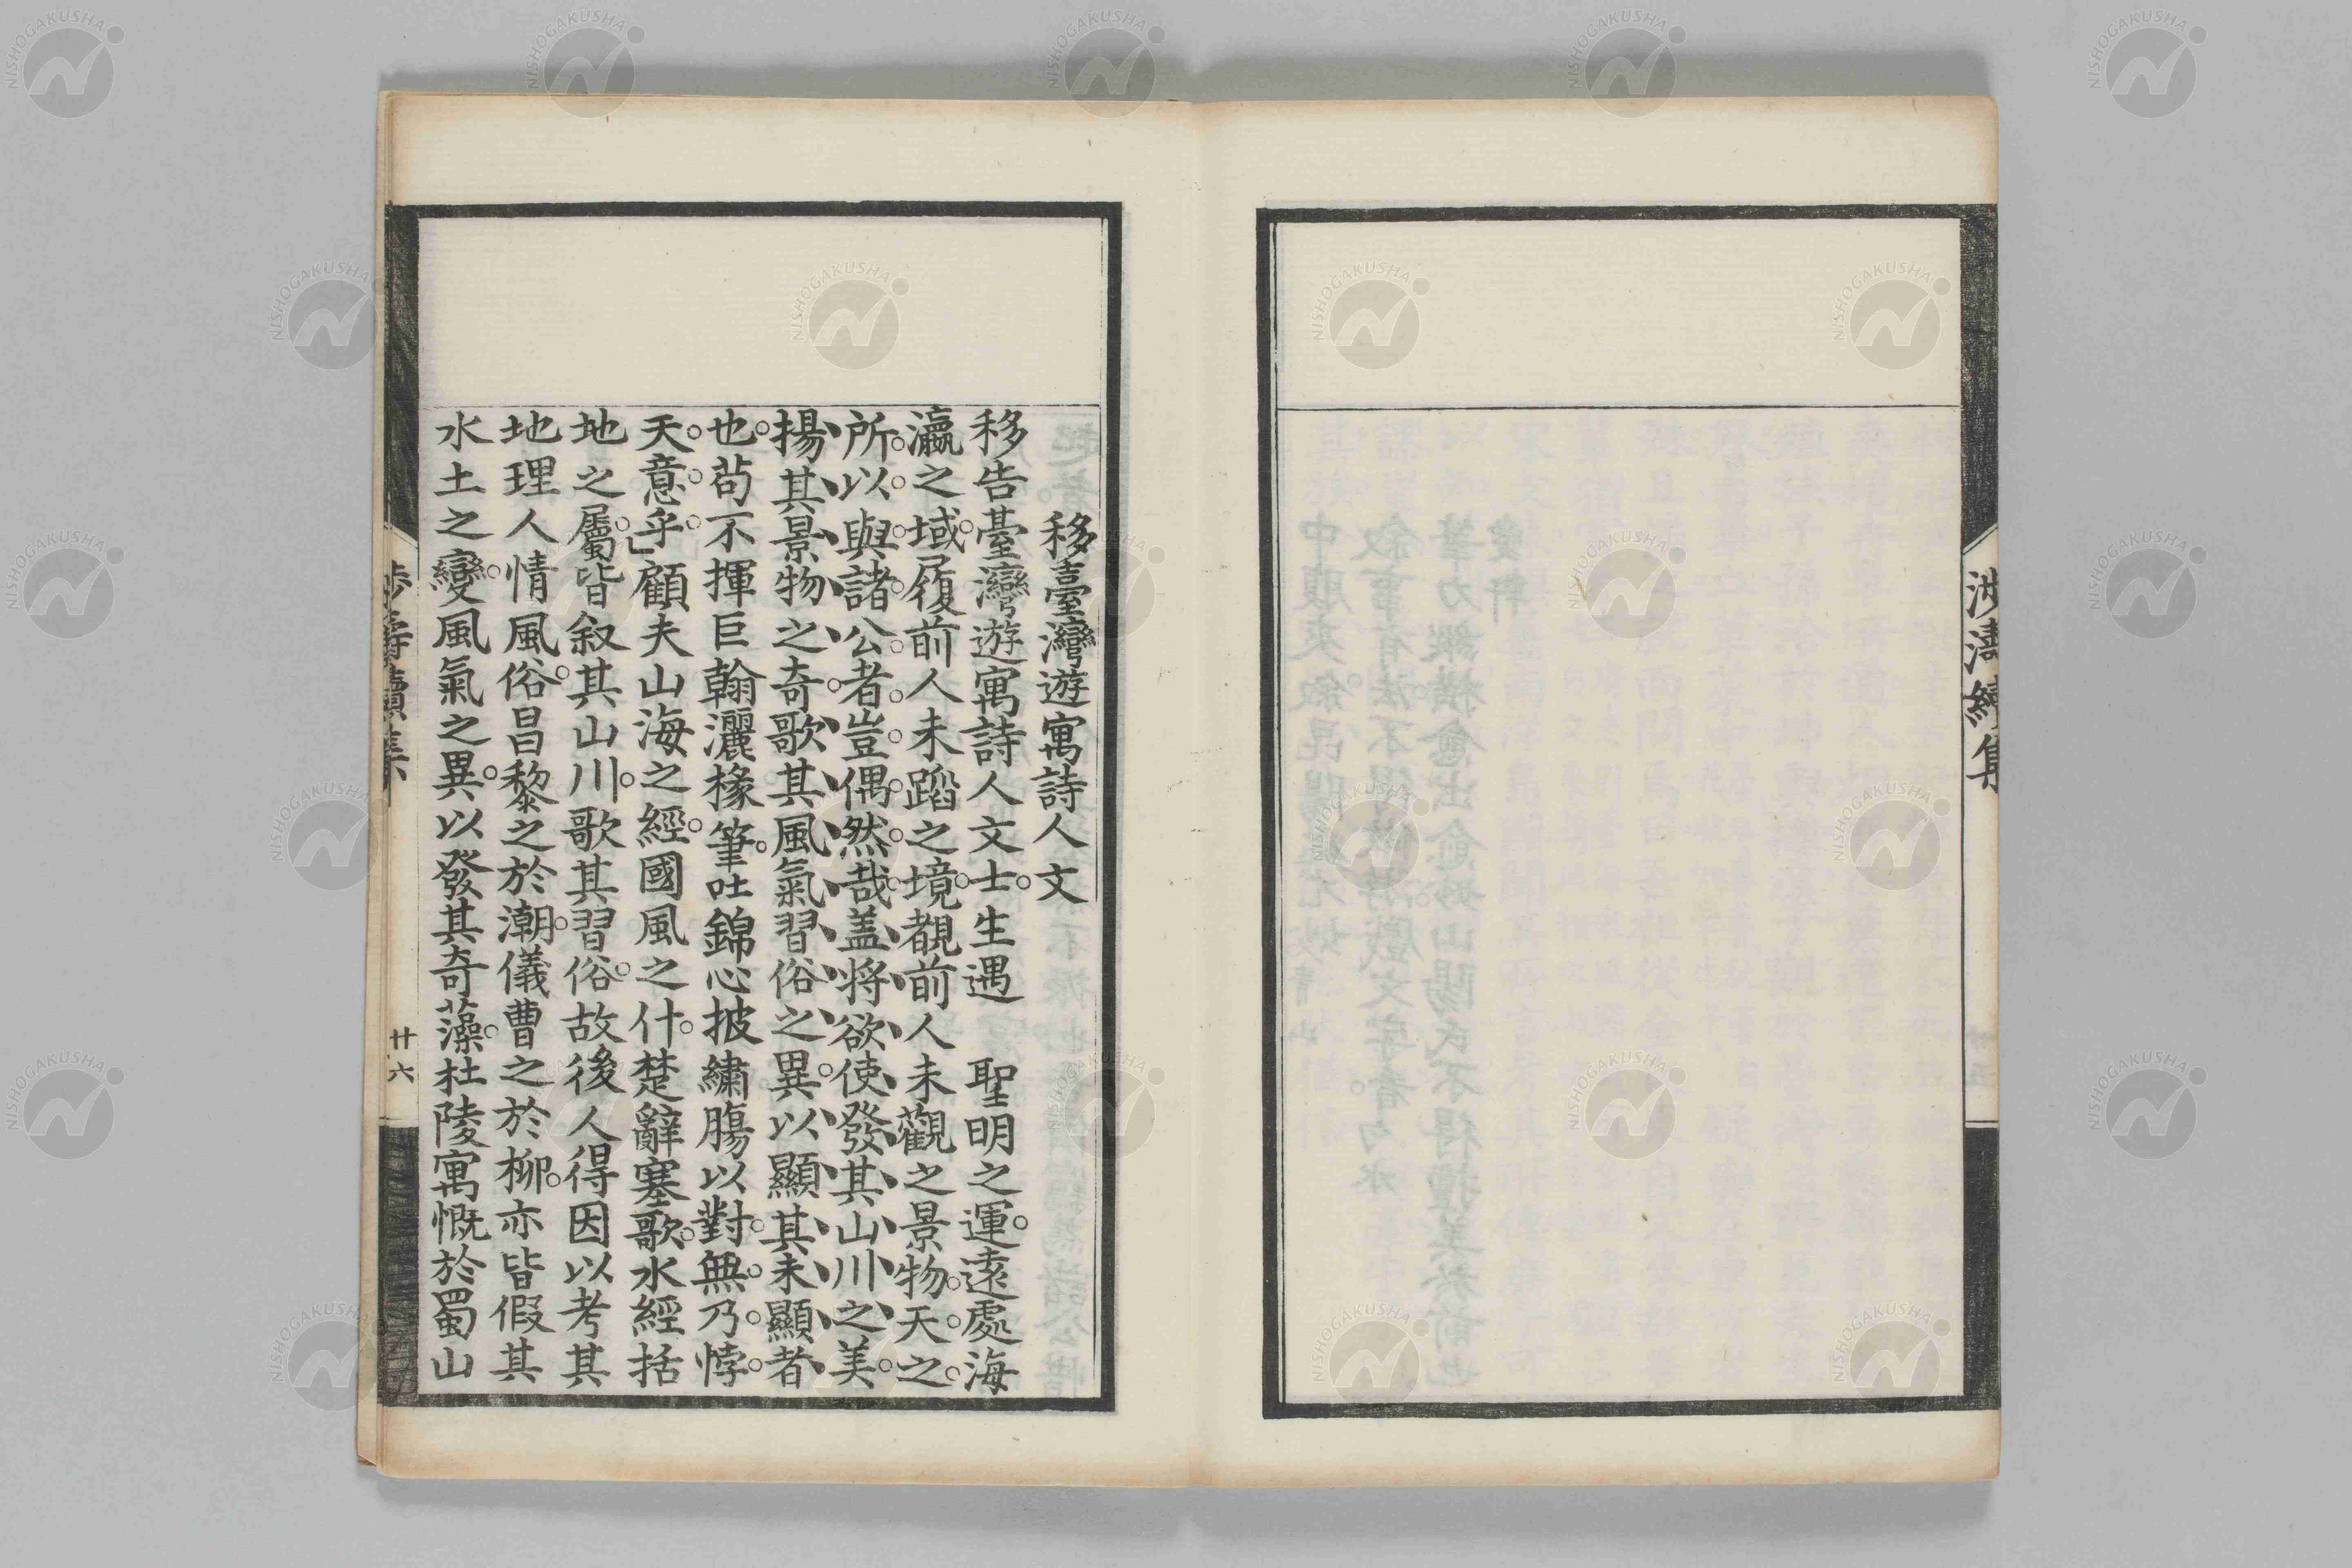 涉濤續集
移臺灣遊寓詩人文
移告臺灣遊寓詩人文士。生遇　聖明之運。遠處海
瀛之域。履前人未蹈之境。覩前人未觀之景物。天之
所以與諸公者。豈偶然哉。盖將欲使發其山川之美。
揚其景物之奇。歌其風氣習俗之異。以顯其未顯者
也。苟不揮巨翰灑椽筆。吐錦心披繡膓以對。無乃悖
天意乎」顧夫山海之經。國風之什。楚辭塞歌。水經括
地之屬。皆叙其山川。歌其習俗。故後人得因以考其
地理人情風俗。昌黎之於潮。儀曹之於柳。亦皆假其
水土之變。風氣之異。以發其奇藻。杜陵寓慨於蜀山
涉濤續集
廿六
NISHOGAKUSHA